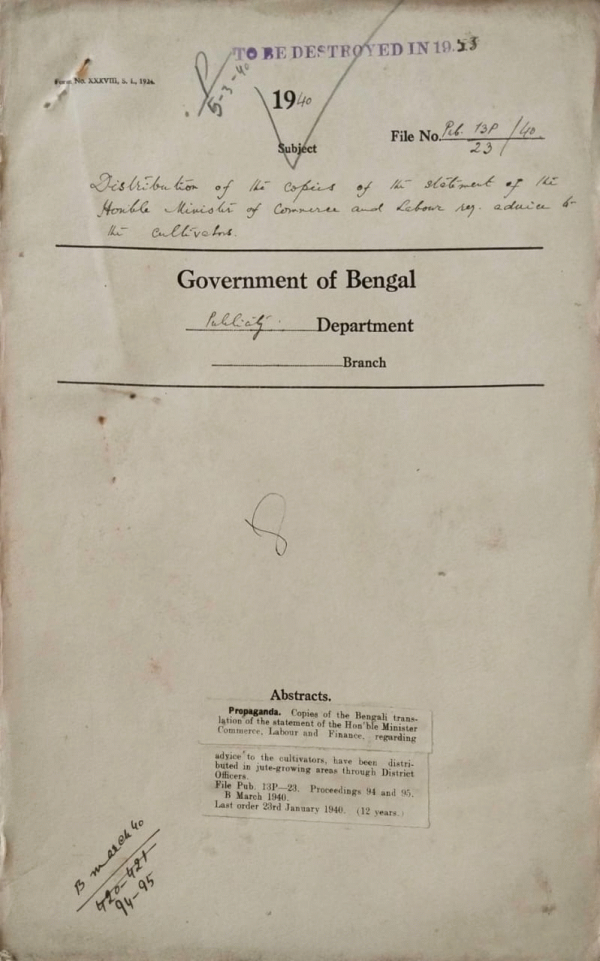 TO BE DESTROYED IN 1953
Form No. XXXVIII, S. I., 1936.
5-3-40
1940
Subject
File No. Pub. 13P/40
23
Distribution of the copies of the statement of the
Honble Minister of Commerce and Labour reg. advice to
the cultivators.
Government of Bengal
Publicity Department
Branch
Abstracts.
Propaganda. Copies of the Bengali trans-
lation of the statement of the Hon'ble Minister
Commerce, Labour and Finance, regarding
advice to the cultivators, have been distri-
buted in jute-growing areas through District
Officers.
File Pub. 13P—23. Proceedings 94 and 95.
B March 1940.
Last order 23rd January 1940. (12 years.)
B march 40
420-421
94-95